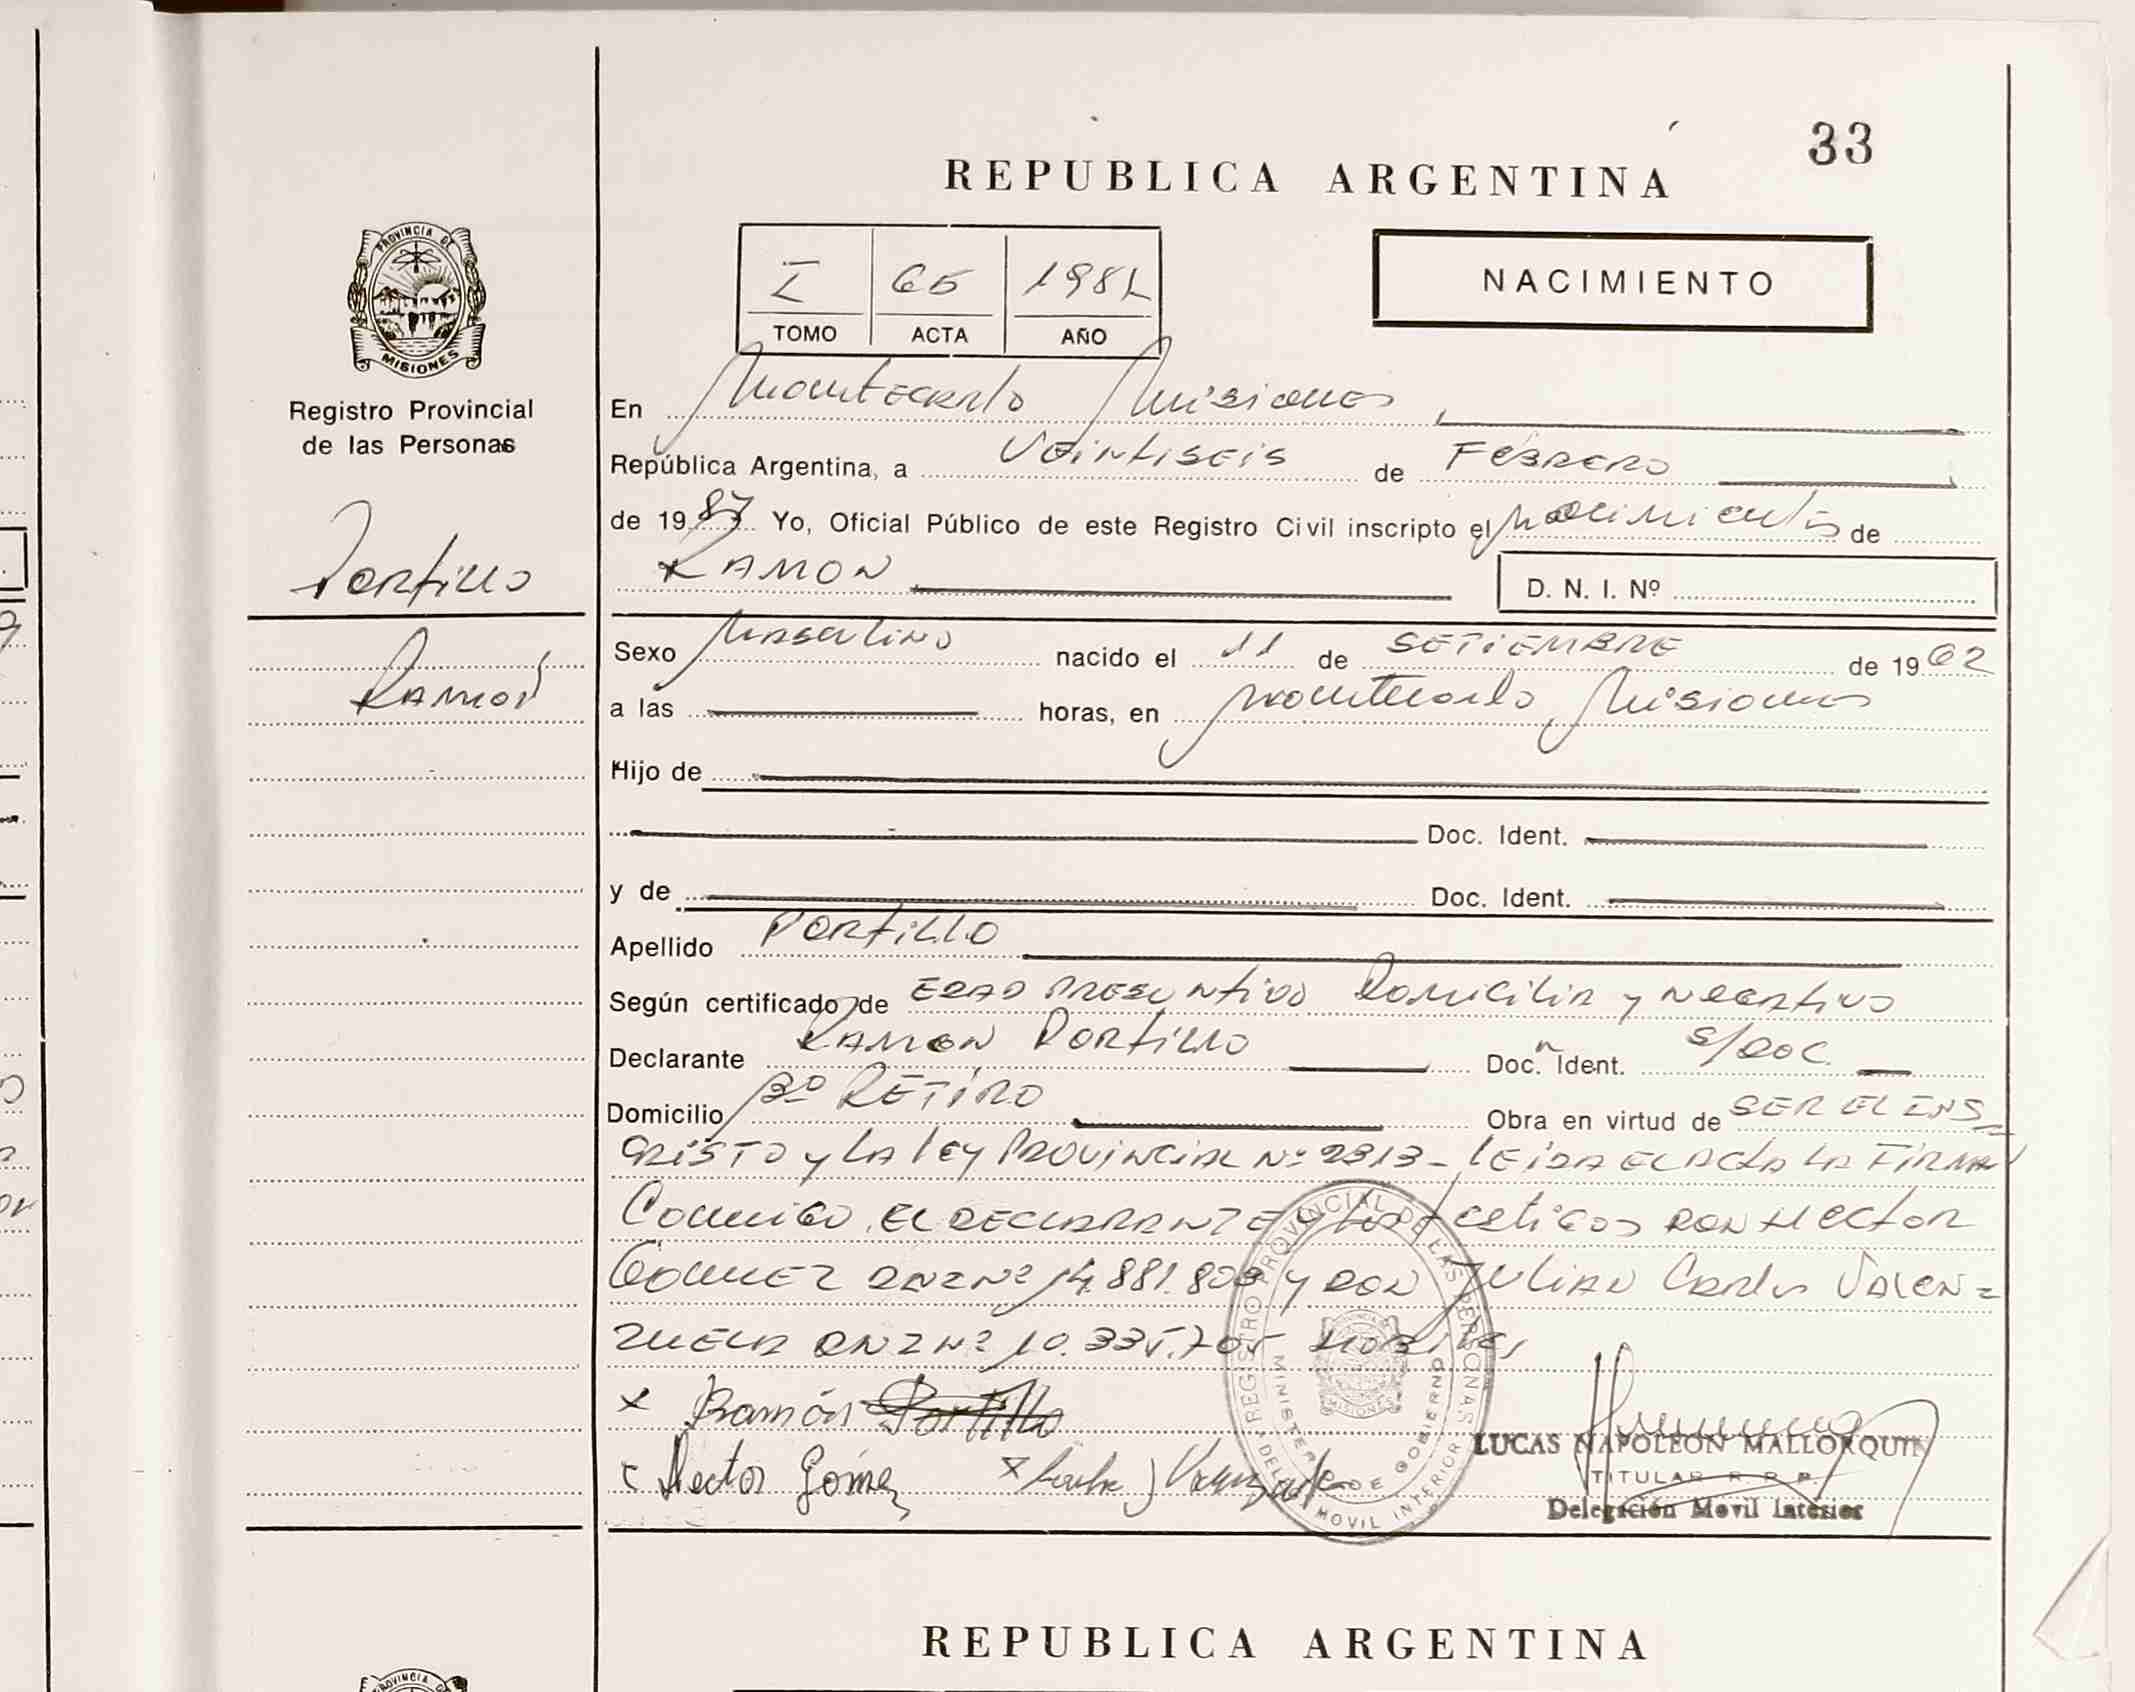 33
REPUBLICA ARGENTINA
PROVINCIA DE
MISIONES
Registro Provincial
de las Personas
Portillo
Ramon
I 65
TOMO ACTA AÑO
NACIMIENTO
En Montecarlo Misiones,
República Argentina, a Veintiseis de Febrero
de 1987 Yo, Oficial Público de este Registro Civil inscripto el nacimiento de
RAMON D. N. I. Nº
Sexo Masculino nacido el 11 de SETIEMBRE de 1962
a las horas, en Montecarlo, Misiones
Hijo de
Doc. Ident.
y de Doc. Ident.
Apellido PORTILLO
Según certificado de EDAD PRESUNTIVO Domicilia y NEGATIVO
Declarante RAMON PORTILLO Doc. Ident. S/DOC.
Domicilio Bº RETIRO Obra en virtud de SER EL INS
CRISTO y LA LEY PROVINCIAL Nº 2313 - LEIDA EL ACTA LA FIRMA
Conmigo EL DECLARANTE y LOS testigos DON Hector
Gomez DNI Nº 14.881.808 y DON JULIAN Carlos VALEN=
ZUELA DNI Nº 10.335.705 HOBILES
x Ramón Portillo
Hector Gómez x
REGISTRO PROVINCIAL DE LAS PERSONAS
MINISTERIO DE GOBIERNO
DELEG. MOVIL INTERIOR
LUCAS NAPOLEON MALLORQUIN
TITULAR R. P. P.
Delegación Movil Interior
REPUBLICA ARGENTINA